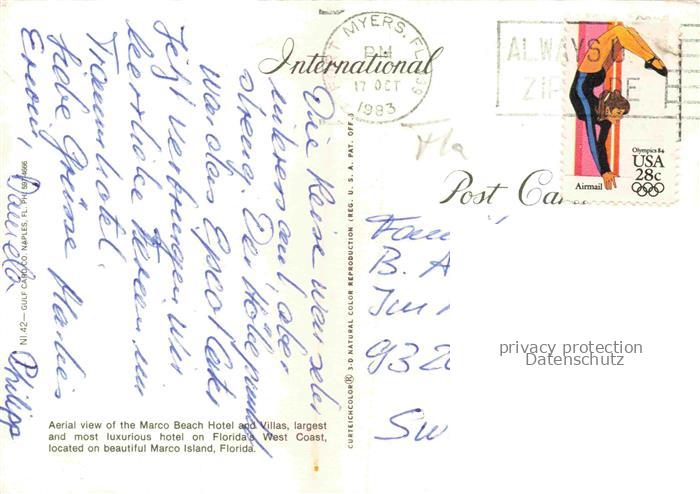 International
Post Car
FT MYERS, FL
PM
17 OCT
1983
ALWAYS U
ZIP DE
Olympics 84
USA
28c
Airmail
Fla
Die Reise war sehr
interessant, aber
streng. Der Höhepunkt
war das Epcot Center
Jetzt verbringen wir
herrliche Ferien im
Traumhotel.
Liebe Grüsse Marlies
Erwin, Daniela
Philipp
Fam
B. A
Im
932
Sw
privacy protection
Datenschutz
CURTEICHCOLOR® 3-D NATURAL COLOR REPRODUCTION (REG. U. S. A. PAT. OFF.)
NI.42— GULF CARD CO. NAPLES, FL. PH:
Aerial view of the Marco Beach Hotel and Villas, largest
and most luxurious hotel on Florida's West Coast,
located on beautiful Marco Island, Florida.